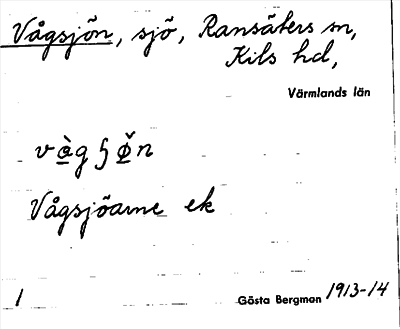 Vågsjön, sjö, Ransäters sn,
Kils hd,
Värmlands län
vàgʃø̌n
Vågsjöarne ek
1
Gösta Bergman 1913-14